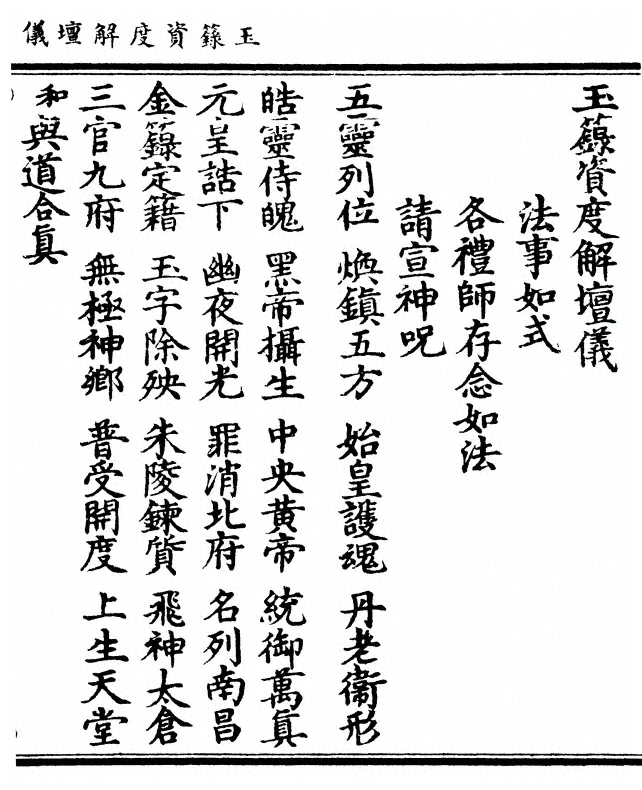 玉籙資度解壇儀
玉籙資度解壇儀
法事如式
各禮師存念如法
請宣神呪
五靈列位 煥鎮五方 始皇護魂 丹老衞形
皓靈侍魄 黑帝攝生 中央黃帝 統御萬眞
元皇誥下 幽夜開光 罪消北府 名列南昌
金籙定籍 玉字除殃 朱陵鍊質 飛神太倉
三官九府 無極神鄉 普受開度 上生天堂
和
與道合眞